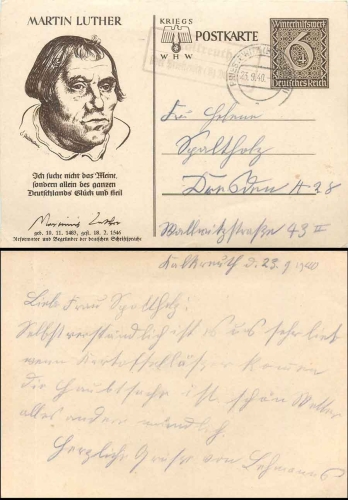 MARTIN LUTHER
KRIEGS
WHW
POSTKARTE
Winterhilfswerk
6+4
Deutsches Reich
23.9.40
Ich suche nicht das Meine,
sondern allein des ganzen
Deutschlands Glück und Heil
geb. 10. 11. 1483, gest. 18. 2. 1546
Reformator und Begründer der deutschen Schriftsprache
Frau Helene
Spaltholz
Dresden A 28
Wallwitzstraße 43 II
Kalkreuth d. 23.9.1940
Liebe Frau Spaltholz!
Selbstverständlich ist es uns sehr lieb
wenn Kartoffelläser kommen
die Hauptsache ist schön Wetter
alles andere mündlich.
Herzliche Grüße von Lehmanns